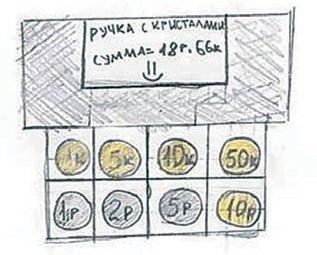 РУЧКА С КРИСТАЛАМИ
СУММА= 18 Р. 66к
1к 5к 10к 50к
1р 2р 5р 10р